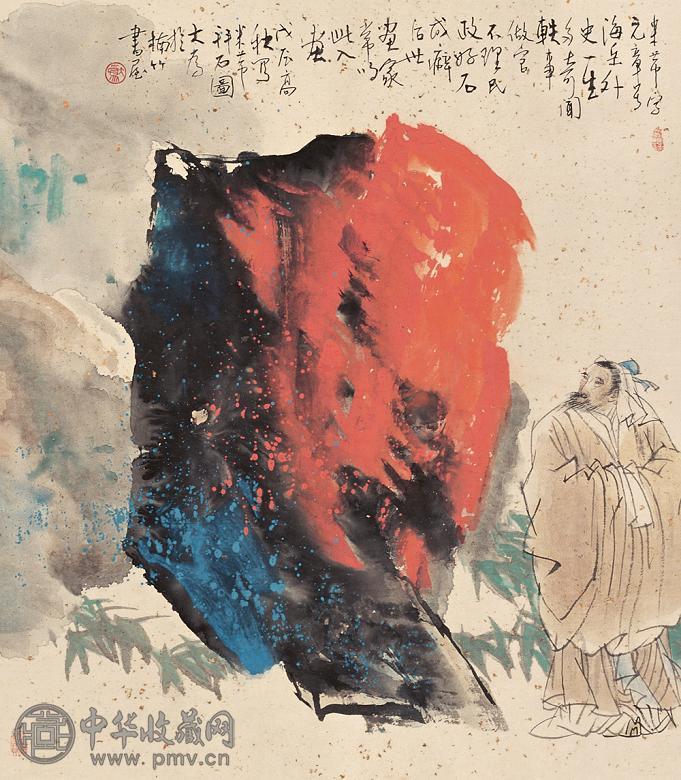 米芾字
元章号
海岳外
史一生
多奇聞
軼事
做官
不理民
政好石
成癖
后世
畫家
常以
此入
畫
戊辰高
秋寫
米芾
拜石圖
大為
於
楠竹
書屋
中华收藏网
www.pmv.cn